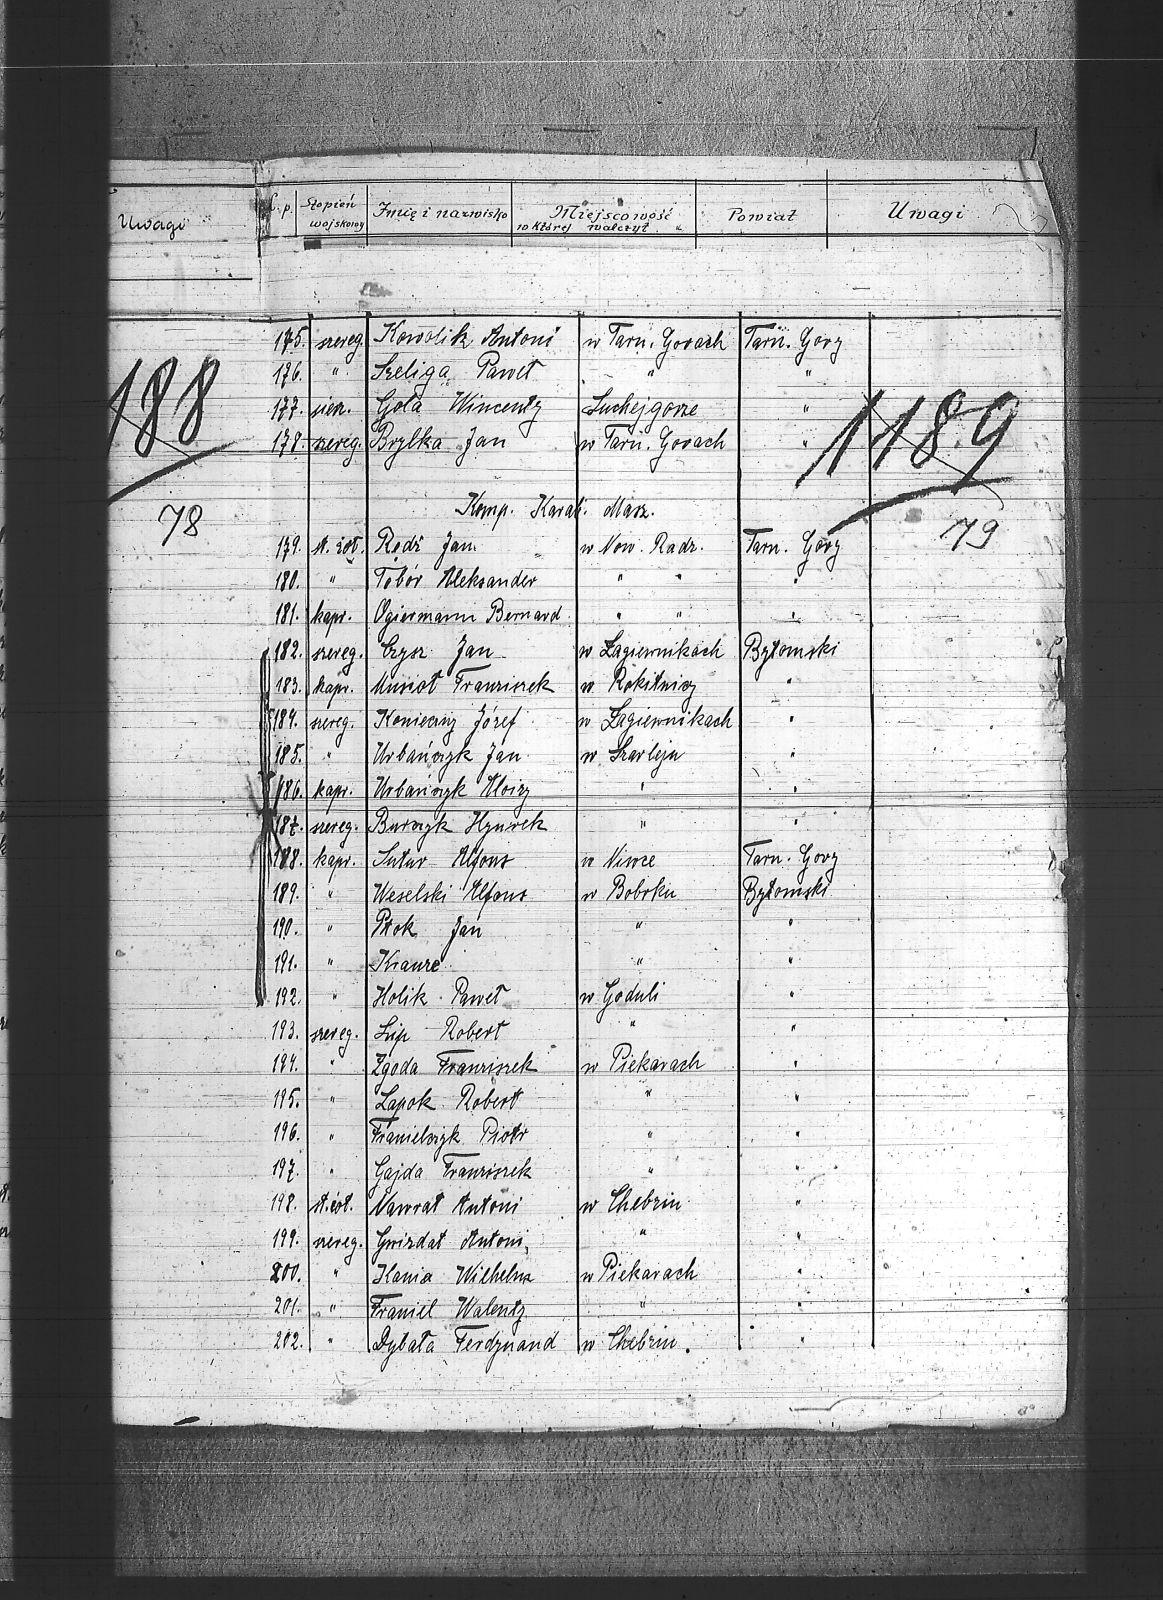 Uwagi
L.p. Stopień wojskowy Imię i nazwisko Miejscowość w której walczył Powiat Uwagi
175. szereg. Kowolik Antoni w Tarn. Górach Tarn. Góry
176. " Szeliga Paweł " "
188
177. sierż. Gola Wincenty Suchejgórze "
1189
178. szereg. Brylka Jan w Tarn. Górach "
Komp. Karab. Masz.
78
79
179. st. żoł. Redź Jan w Now. Radz. Tarn. Góry
180. " Tobór Aleksander " " "
181. kapr. Ogiermann Bernard " " "
182. szereg. Czysz Jan w Łagiewnikach Bytomski
183. kapr. Musioł Franciszek w Rokitnicy "
184. szereg. Konieczny Józef w Łagiewnikach "
185. " Urbańczyk Jan w Szarleju "
186. kapr. Urbańczyk Alojzy " "
187. szereg. Burczyk Hynrek " "
188. kapr. Alfons w Tarn. Góry
189. " Weselski Alfons w Bobrku Bytomski
190. " Ptok Jan " "
191. " Krauze " "
192. " Holik Paweł w Goduli "
193. szereg. Lip Robert " "
194. " Zgoda Franciszek w Piekarach "
195. " Łapok Robert " "
196. " Franielczyk Piotr " "
197. " Gajda Franciszek " "
198. st. żoł. Nawrat Antoni w Chebziu "
199. szereg. Gwizdał Antoni " "
200. " Kania Wilhelm w Piekarach "
201. " Franiel Walenty " "
202. " Dybała Ferdynand w Chebziu "